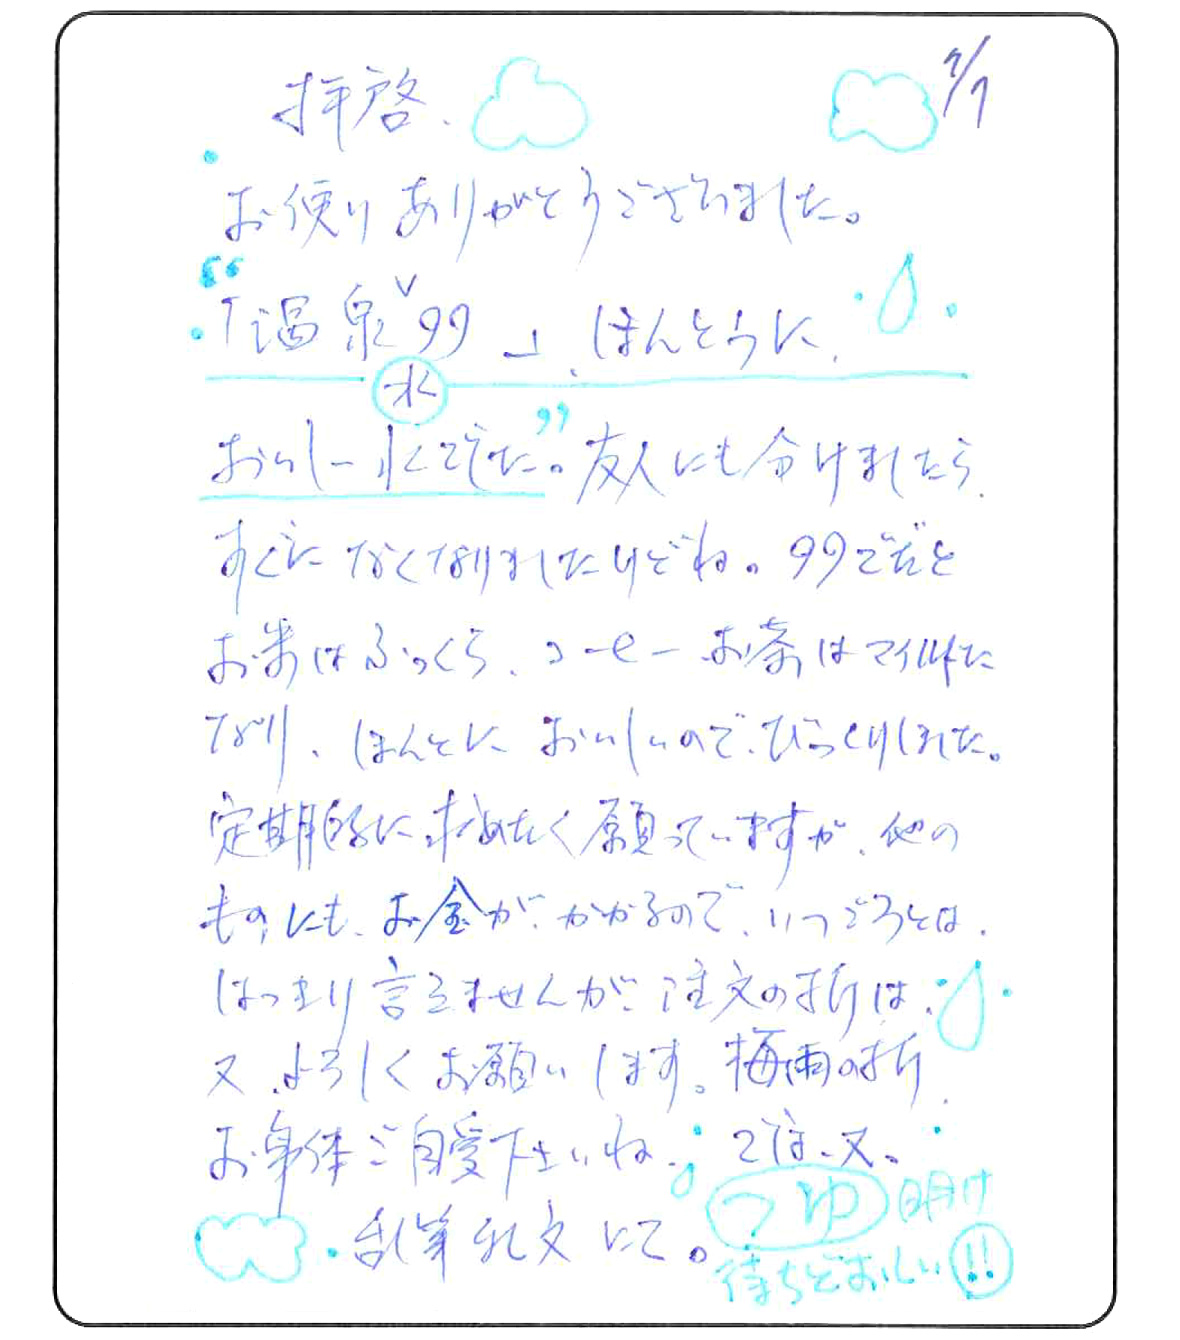 7/7
拝啓、
お便りありがとうございました。
“「温泉水99」、ほんとうに、
おいしー水でした。”友人にも分けましたら、
すぐになくなりましたけどね。99でだと
お米はふっくら、コーヒーお茶はマイルドに
なり、ほんとにおいしいので、びっくりしました。
定期的に求めたく願っていますが、他の
ものにも、お金が、かかるので、いつごろとは、
はっきり言えませんが、注文の折は、
又、よろしくお願いします。梅雨の折、
お身体ご自愛下さいね。では、又。
乱筆乱文にて。
つゆ明け
待ちどおしい!!